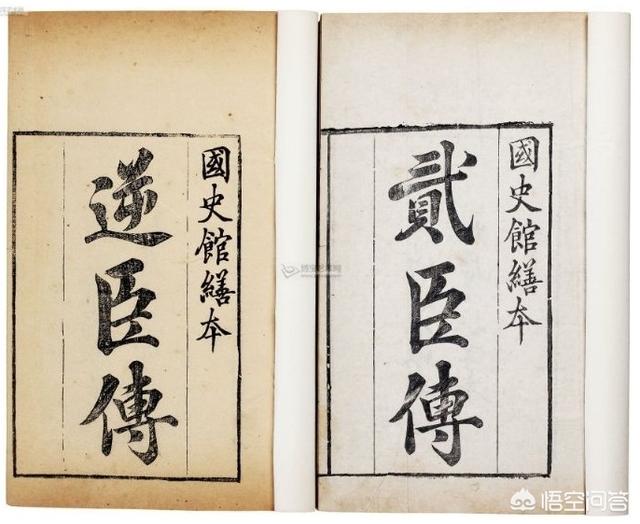 國史館繕本
貳臣傳
國史館繕本
逆臣傳
悟空问答